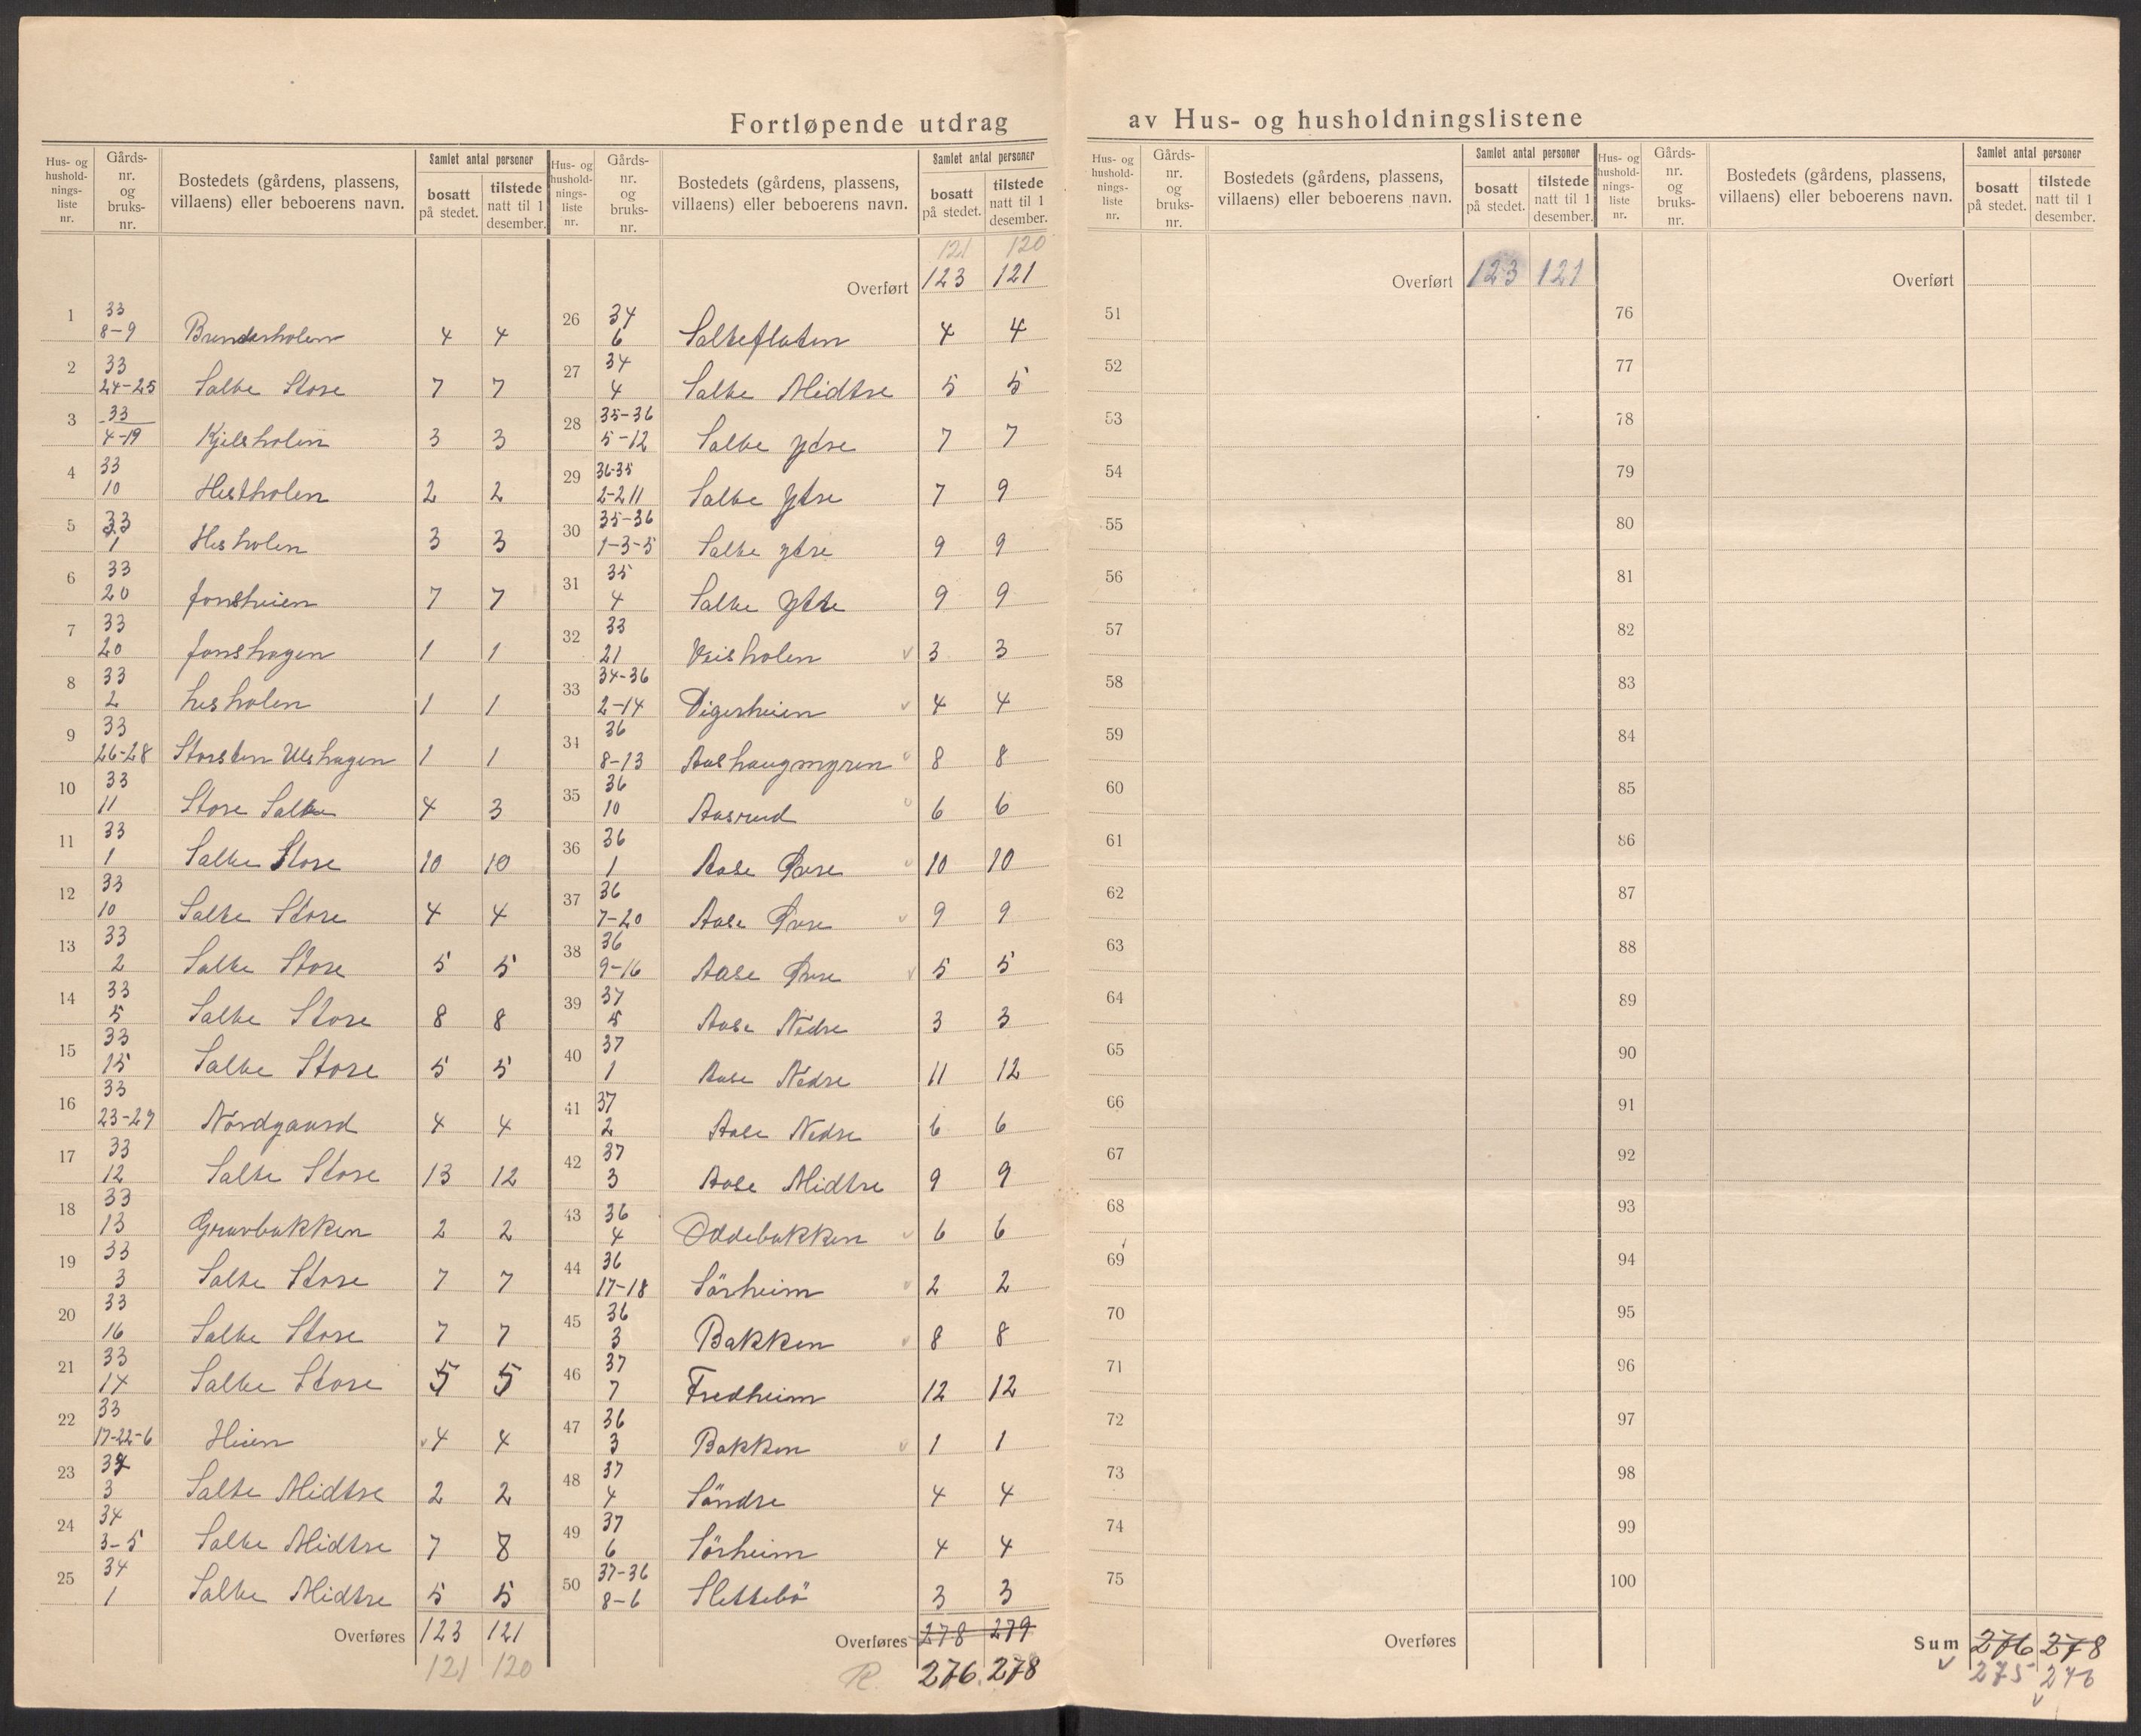 Fortløpende utdrag av Hus- og husholdningslistene
Hus- og hushold-nings-liste nr. | Gårds-nr. og bruks-nr. | Bostedets (gårdens, plassens, villaens) eller beboerens navn. | Samlet antal personer | bosatt på stedet. | tilstede natt til 1 desember.
1 33 8-9 Brendesholen 4 4
2 33 24-25 Salte Store 7 7
3 33 4-19 Kjelsholen 3 3
4 33 10 Hestholen 2 2
5 33 1 Hesholen 3 3
6 33 20 fonsheien 7 7
7 33 20 fonshagen 1 1
8 33 2 hesholen 1 1
9 33 26-28 Storsten Ulshagen 1 1
10 33 11 Store Salte 4 3
11 33 1 Salte Store 10 10
12 33 10 Salte Store 4 4
13 33 2 Salte Store 5 5
14 33 5 Salte Store 8 8
15 33 15 Salte Store 5 5
16 33 23-27 Nordgaard 4 4
17 33 12 Salte Store 13 12
18 33 13 Gravbakken 2 2
19 33 3 Salte Store 7 7
20 33 16 Salte Store 7 7
21 33 14 Salte Store 5 5
22 33 17-22-6 Heien 4 4
23 34 3 Salte Midtre 2 2
24 34 3-5 Salte Midtre 7 8
25 34 1 Salte Midtre 5 5
Overføres 123 121
121 120
Hus- og hushold-nings-liste nr. | Gårds-nr. og bruks-nr. | Bostedets (gårdens, plassens, villaens) eller beboerens navn. | Samlet antal personer | bosatt på stedet. | tilstede natt til 1 desember.
121 120
Overført 123 121
26 34 6 Salteflaten 4 4
27 34 4 Salte Midtre 5 5
28 35-36 5-12 Salte ydre 7 7
29 36-35 2-2 11 Salte Ytre 7 9
30 35-36 1-3-5 Salte ytre 9 9
31 35 4 Salte Ytre 9 9
32 33 21 Veisholen 3 3
33 34-36 2-14 Digerheien 4 4
34 36 8-13 Aashaugmyren 8 8
35 36 10 Aasrud 6 6
36 36 1 Aase Øvre 10 10
37 36 7-20 Aase Øvre 9 9
38 36 9-16 Aase Øvre 5 5
39 37 5 Aase Nedre 3 3
40 37 1 Aase Nedre 11 12
41 37 2 Aase Nedre 6 6
42 37 3 Aase Midtre 9 9
43 36 4 Oddebakken 6 6
44 36 17-18 Sörheim 2 2
45 36 3 Bakken 8 8
46 37 7 Fredheim 12 12
47 36 3 Bakken 1 1
48 37 4 Söndre 4 4
49 37 6 Sörheim 4 4
50 37-36 8-6 Slettebö 3 3
Overføres 278 279
R. 276. 278
Hus- og hushold-nings-liste nr. | Gårds-nr. og bruks-nr. | Bostedets (gårdens, plassens, villaens) eller beboerens navn. | Samlet antal personer | bosatt på stedet. | tilstede natt til 1 desember.
Overført 123 121
51
52
53
54
55
56
57
58
59
60
61
62
63
64
65
66
67
68
69
70
71
72
73
74
75
Overføres
Hus- og hushold-nings-liste nr. | Gårds-nr. og bruks-nr. | Bostedets (gårdens, plassens, villaens) eller beboerens navn. | Samlet antal personer | bosatt på stedet. | tilstede natt til 1 desember.
Overført
76
77
78
79
80
81
82
83
84
85
86
87
88
89
90
91
92
93
94
95
96
97
98
99
100
Sum 276 278
275 276